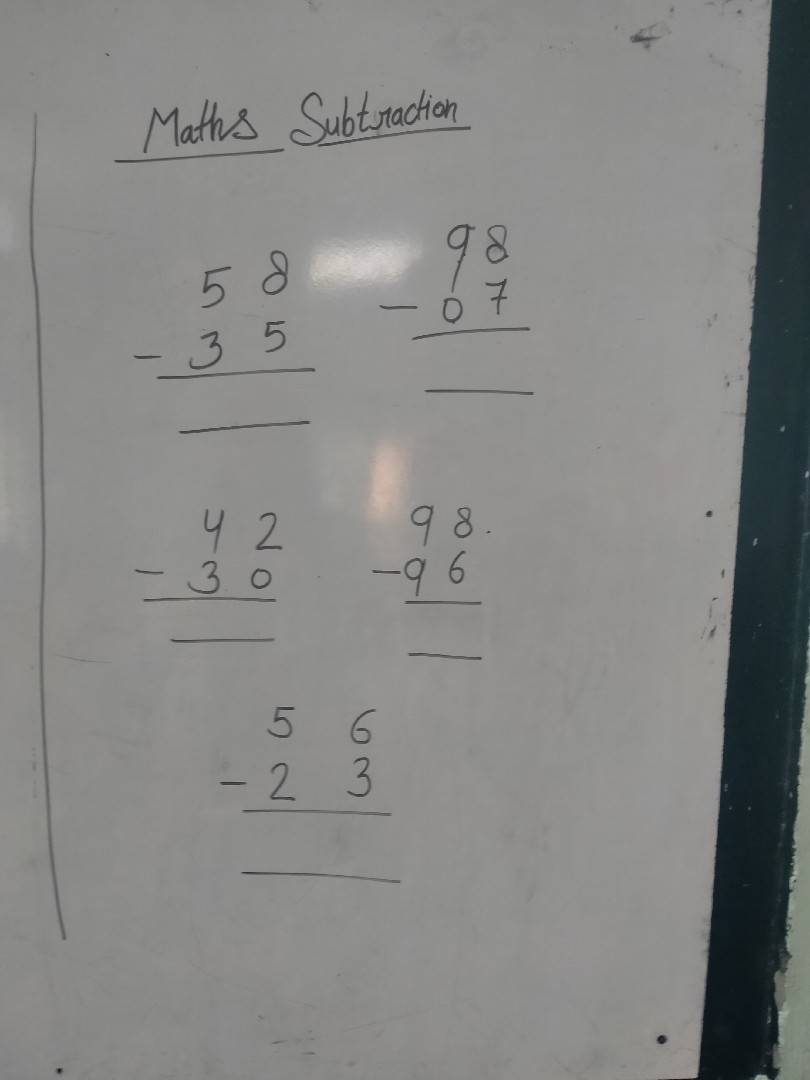 Maths Subtraction
5 8
- 3 5
98
- 07
42
- 30
98.
- 96
5 6
- 2 3